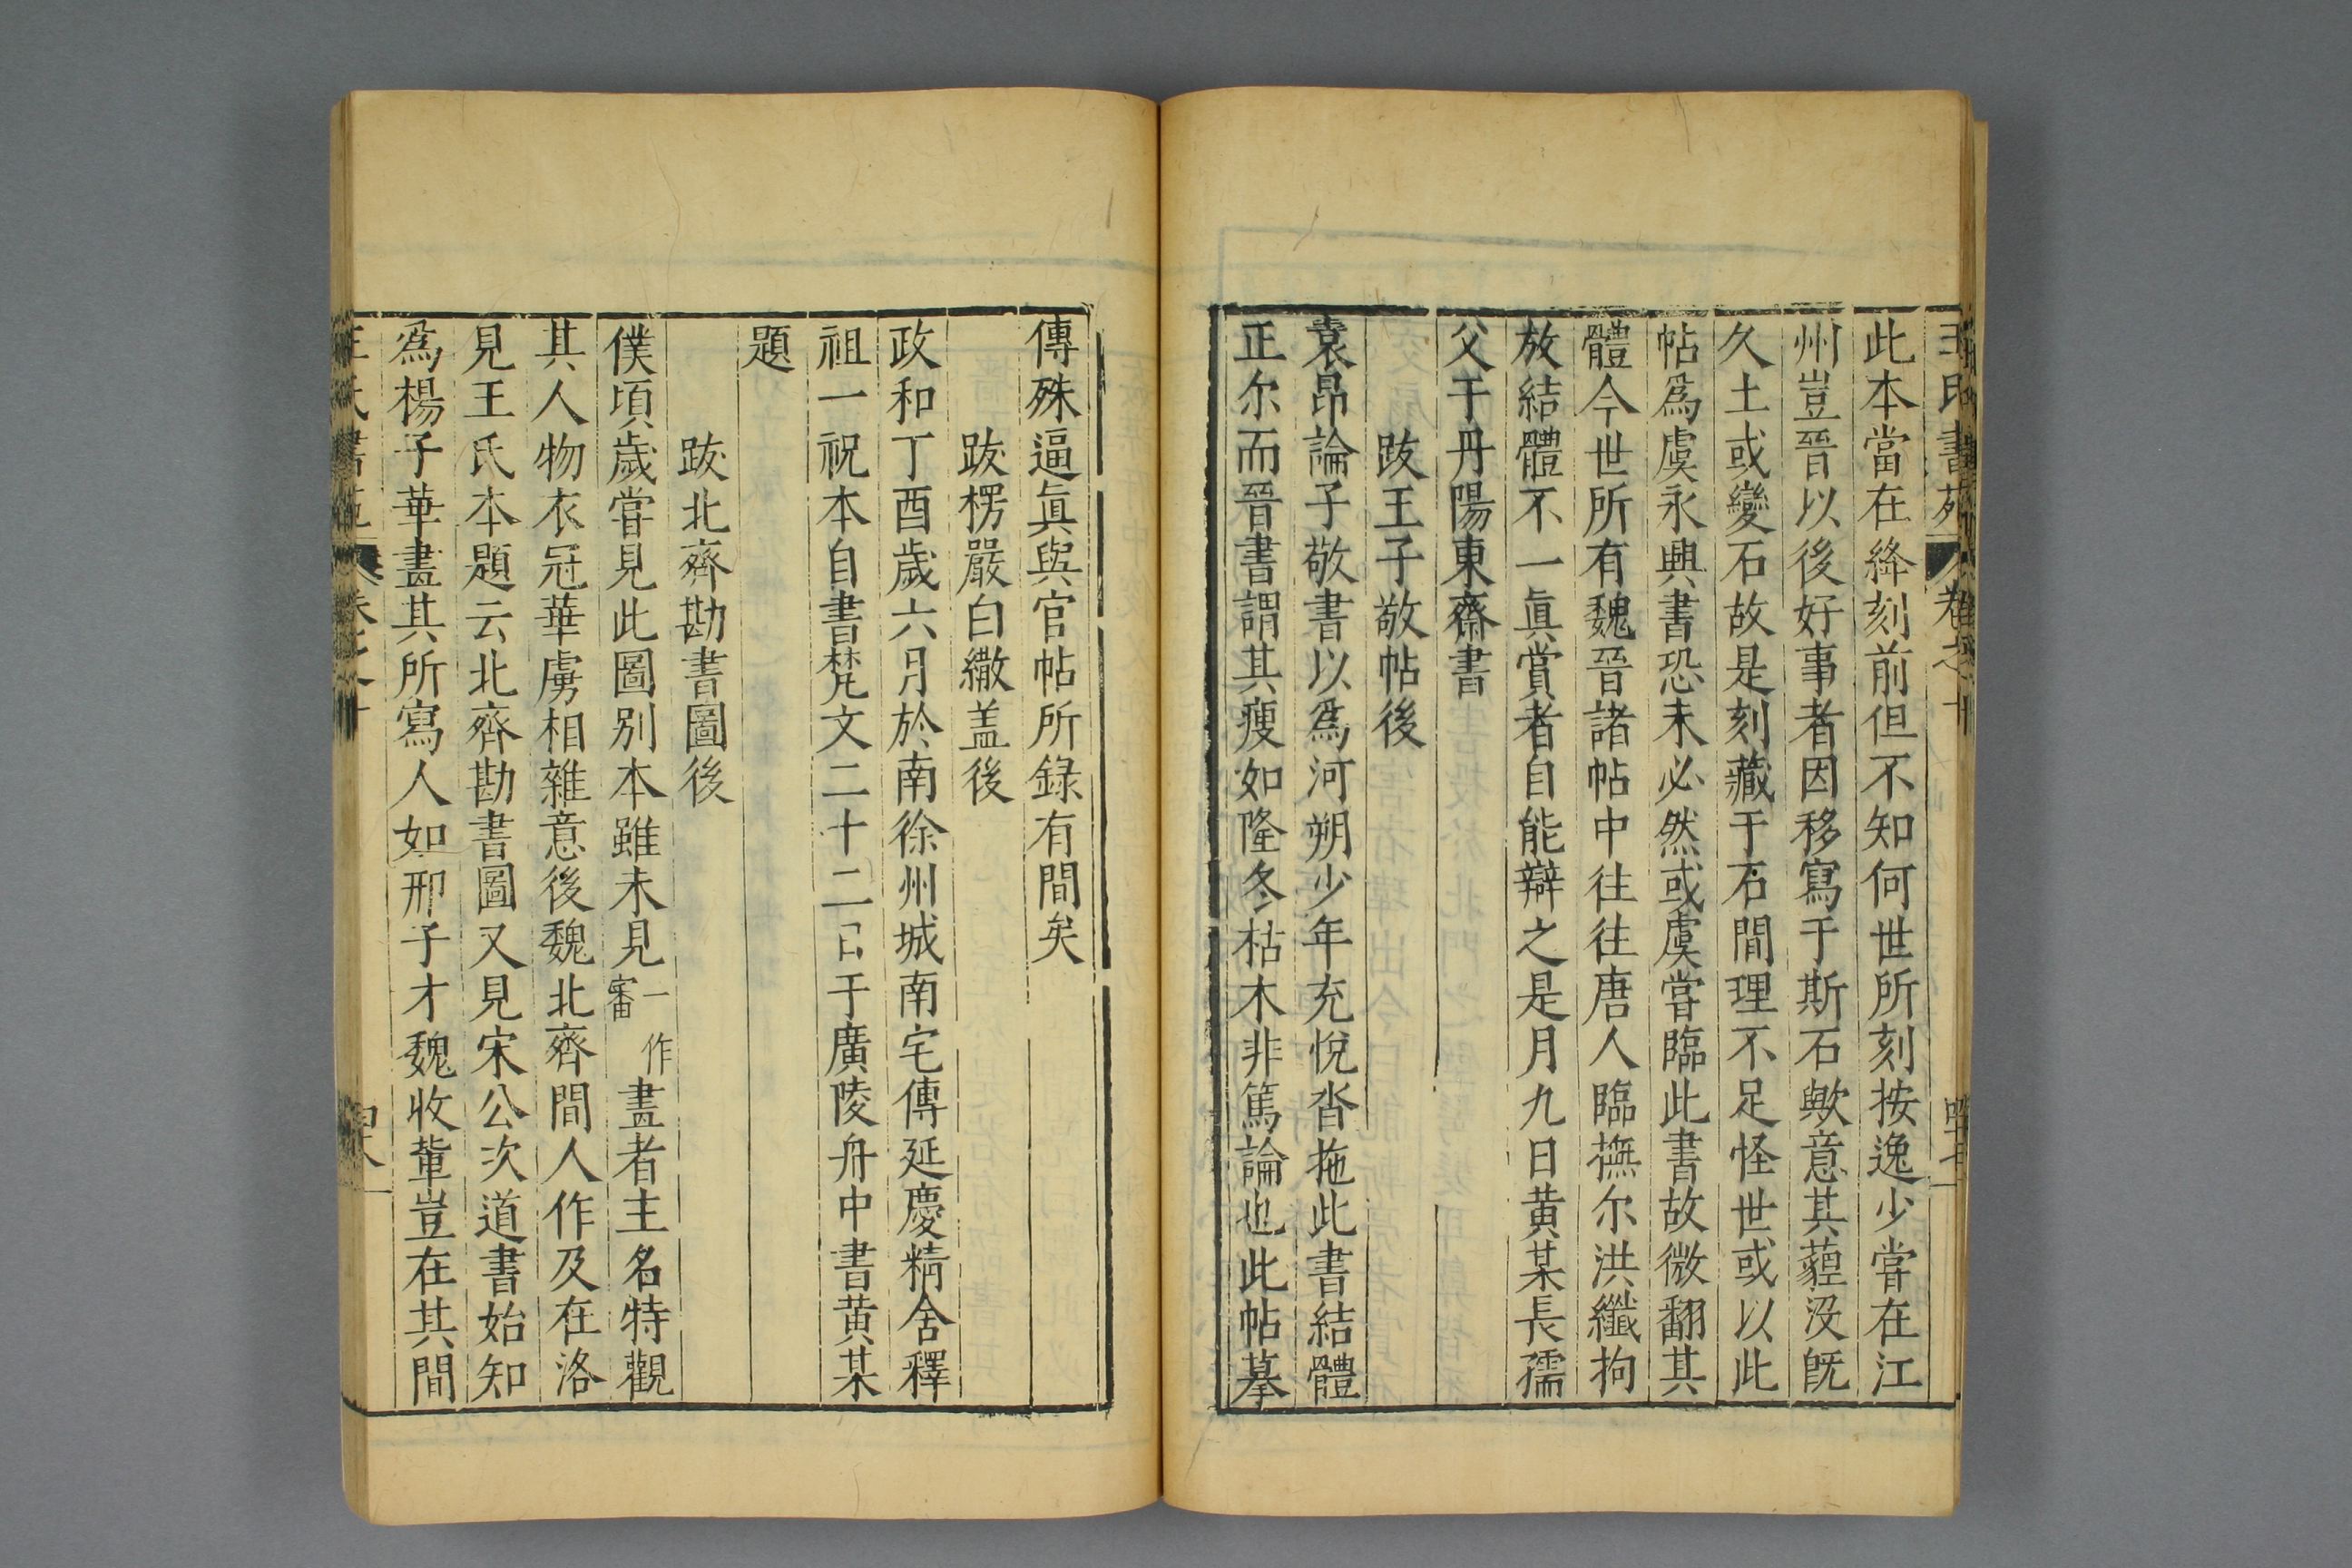 王氏書苑 卷之十 四十七
此本當在絳刻前但不知何世所刻按逸少嘗在江
州豈晉以後好事者因移寫于斯石歟意其薶没旣
久土或變石故是刻藏于石間理不足怪世或以此
帖爲虞永興書恐未必然或虞嘗臨此書故微翻其
體今世所有魏晉諸帖中往往唐人臨橅尔洪纖拘
放結體不一眞賞者自能辯之是月九日黄某長孺
父于丹陽東齋書
跋王子敬帖後
袁昂論子敬書以爲河朔少年充悅沓拖此書結體
正尔而晉書謂其瘦如隆冬枯木非篤論也此帖摹
傳殊逼眞與官帖所録有間矣
跋楞嚴白繖盖後
政和丁酉歲六月於南徐州城南宅傳延慶精舍釋
祖一祝本自書梵文二十二日于廣陵舟中書黄某
題
跋北齊勘書圖後
僕頃歲嘗見此圖别本雖未見一作審畫者主名特觀
其人物衣冠華虜相雜意後魏北齊間人作及在洛
見王氏本題云北齊勘書圖又見宋公次道書始知
爲楊子華畫其所寫人如邢子才魏收軰豈在其間
王氏書苑 卷之十